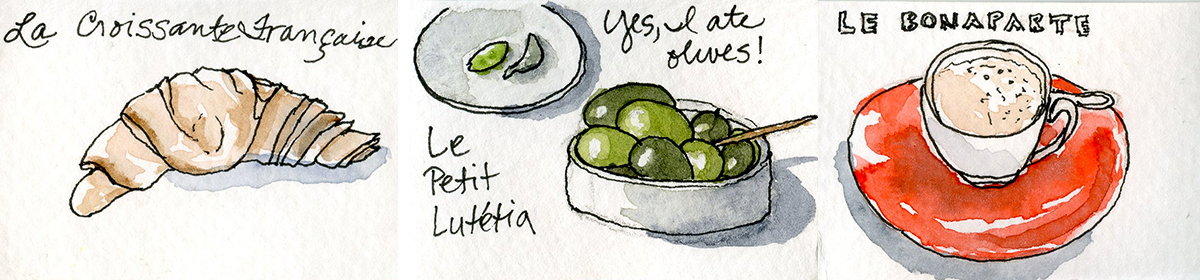 La Croissante Française
Yes, I ate
olives!
Le
Petit
Lutétia
LE BONAPARTE